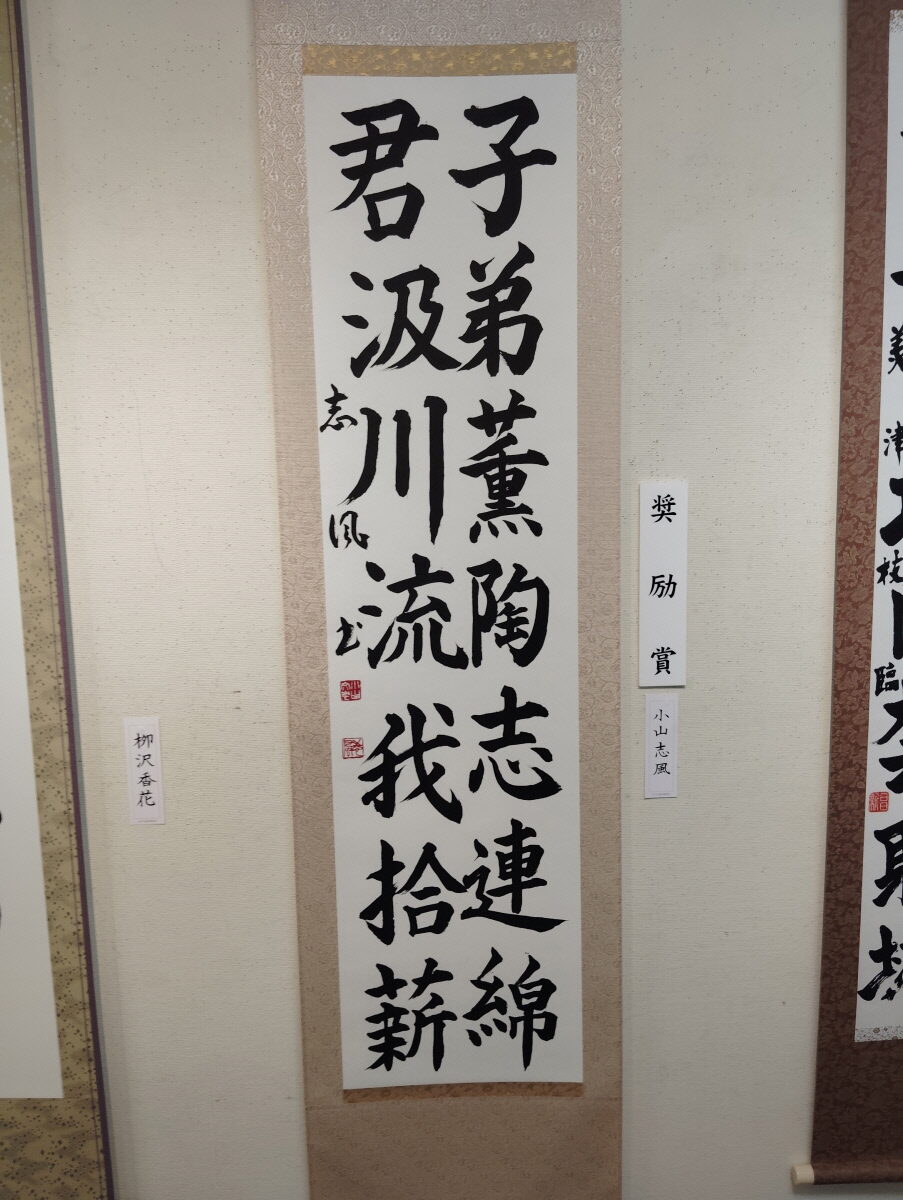 子弟薫陶志連綿
君汲川流我拾薪
志風書
奨励賞
小山志風
柳沢香花
津枝
臨